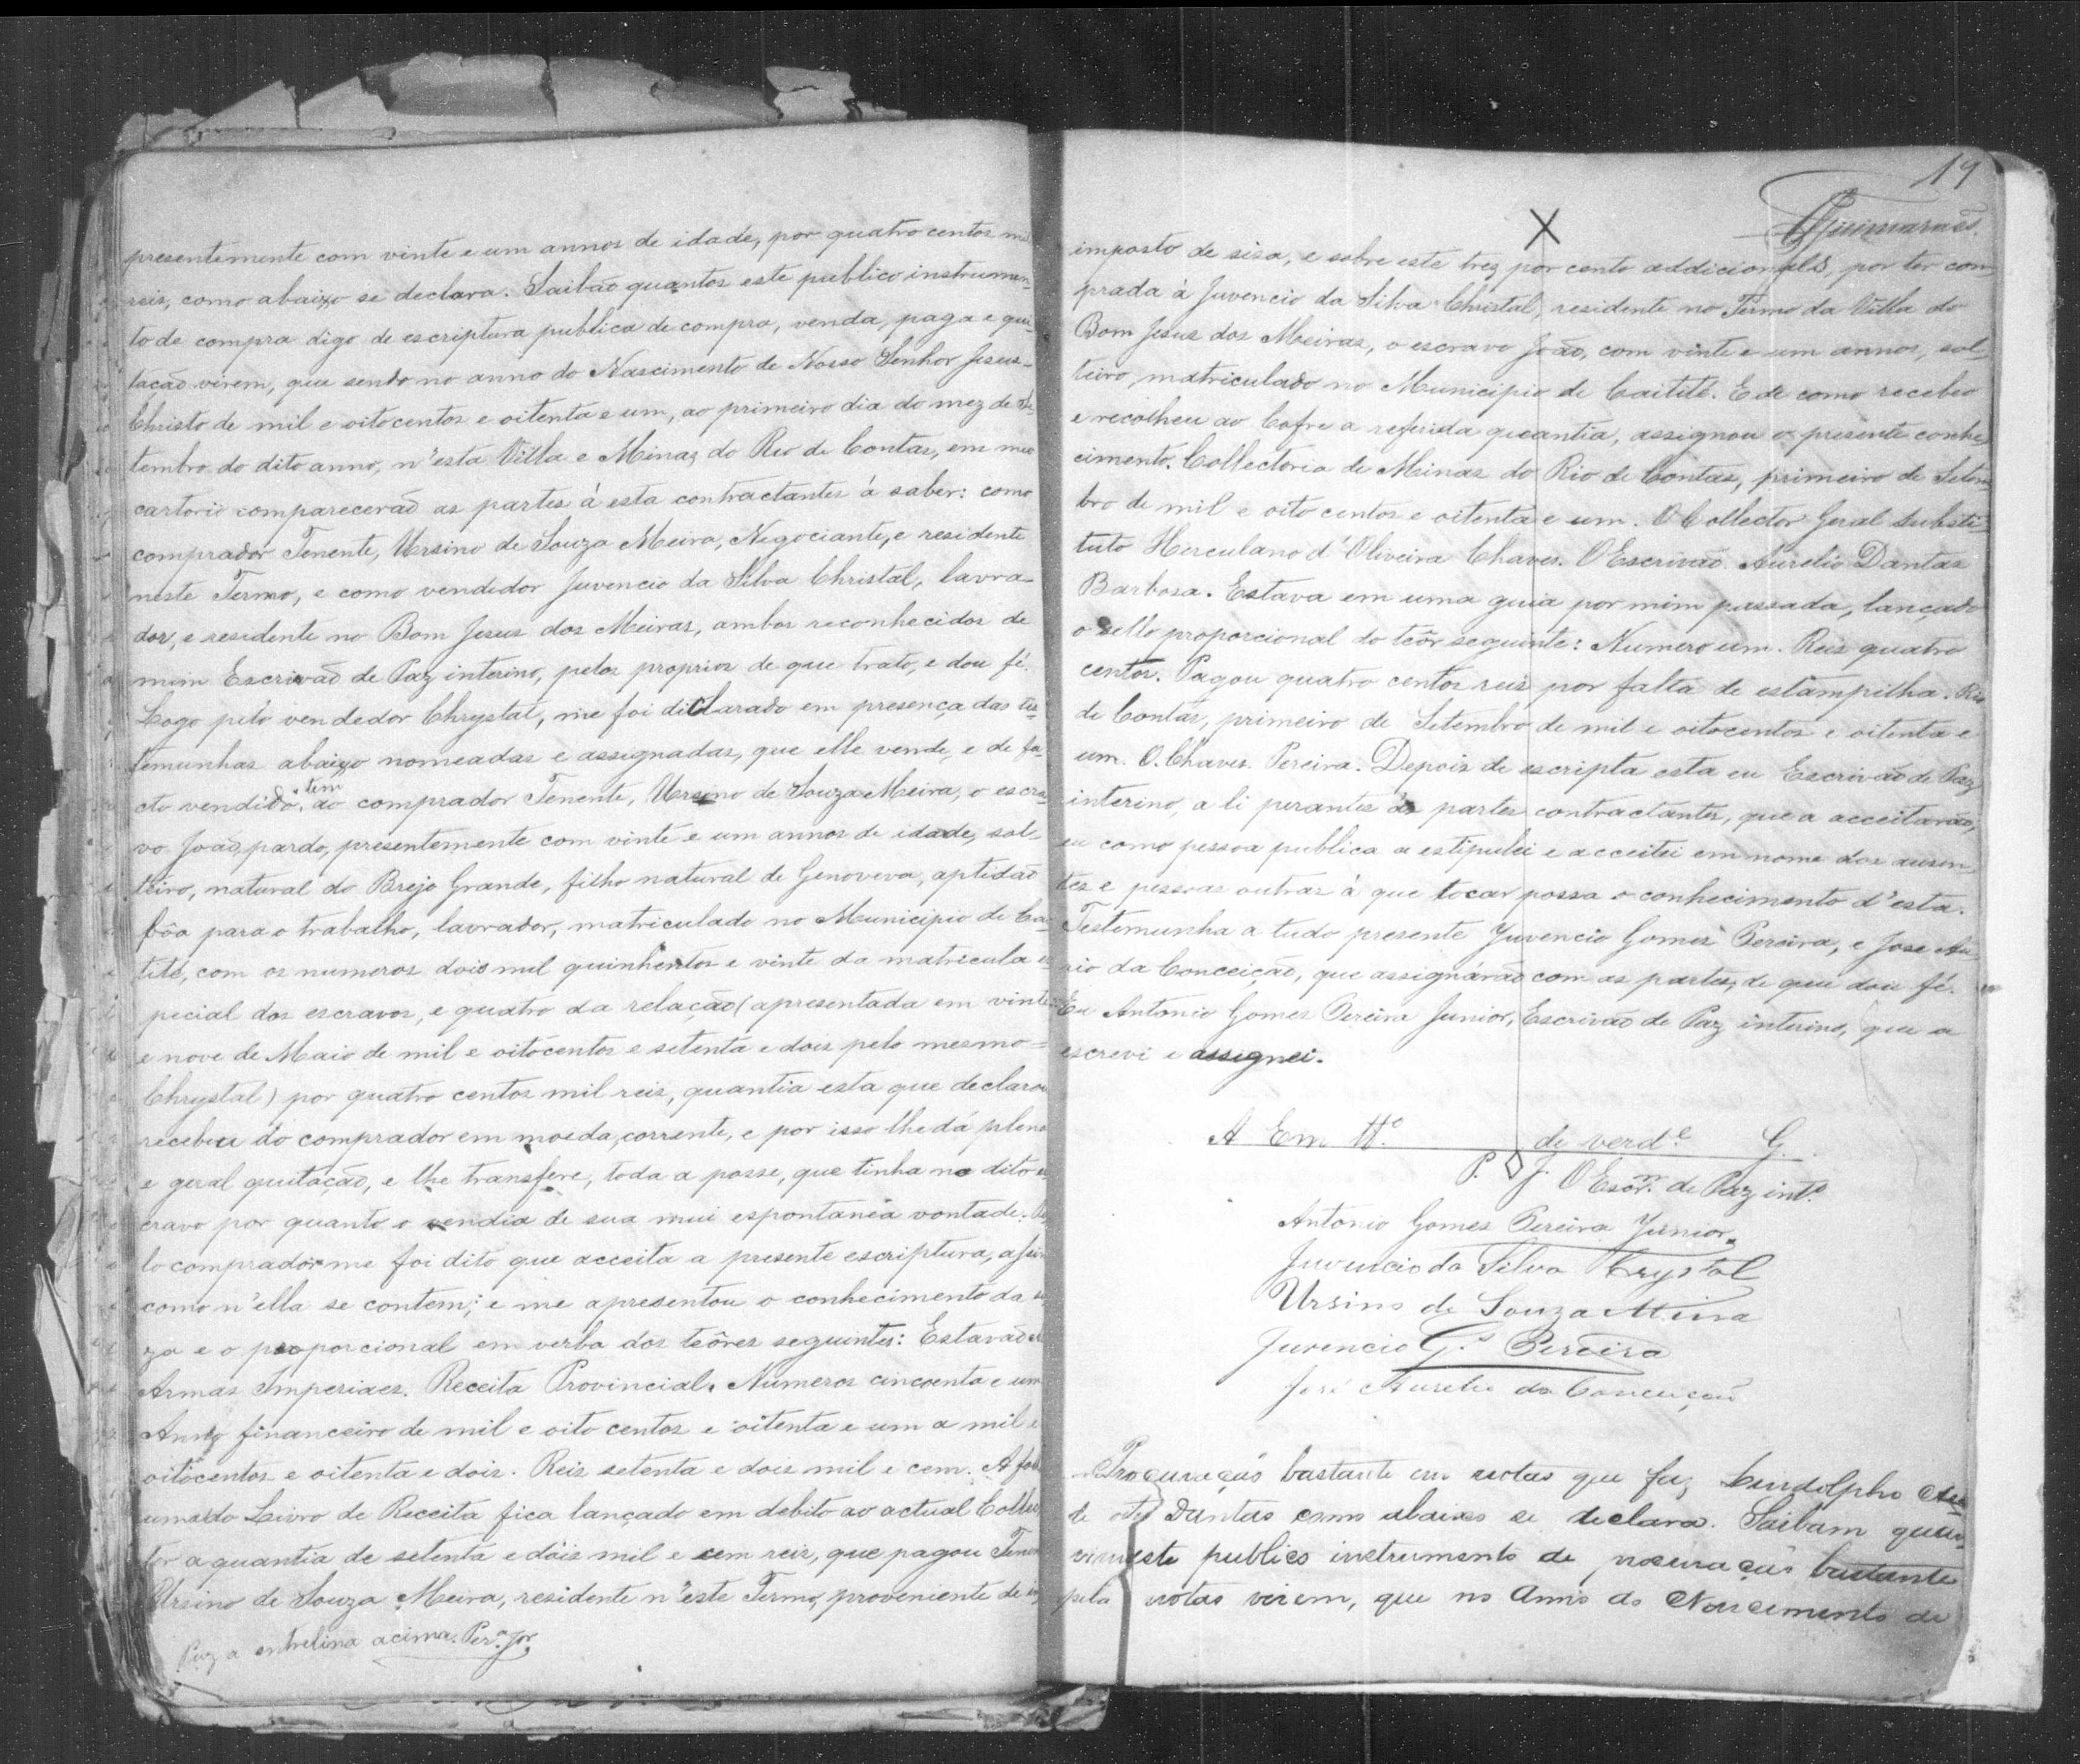 presentemente com vinte e um annos de idade, por quatro centos mil
reis, como abaixo se declara. Saibão quantos este publico instrumen-
to de compra digo de escriptura publica de compra, venda, paga e qui-
tação virem, que sendo no anno do Nascimento de Nosso Senhor Jesus-
Christo de mil e oitocentos e oitenta e um, ao primeiro dia do mez de Se-
tembro do dito anno, n'esta Villa e Minas do Rio de Contas, em meo
cartorio comparecerão as partes á esta contractantes á saber: como
comprador Tenente, Ursino de Souza Meira, Negociante, e residente
neste Termo, e como vendedor Juvencio da Silva Christal, lavra-
dor, e residente no Bom Jesus dos Meiras, ambos reconhecidos de
mim Escrivão de Paz interino, pelos proprios de que trato, e dou fé.
Logo pelo vendedor Chrystal, me foi diclarado em presença das tes-
temunhas abaixo nomeadas e assignadas, que elle vende, e de fa-
cto vendido, tem ao comprador Tenente, Ursino de Souza Meira, o escra-
vo João, pardo, presentemente com vinte e um annos de idade, sol-
teiro, natural do Brejo Grande, filho natural de Genoveva, aptidão
bôa para o trabalho, lavrador, matriculado no Municipio de Cai-
tité, com os numeros dois mil quinhentos e vinte da matricula es-
pecial dos escravos, e quatro da relação (apresentada em vinte
e nove de Maio de mil e oitocentos e setenta e dois pelo mesmo=
Chrystal) por quatro centos mil reis, quantia esta que declarou
recebeu do comprador em moeda corrente, e por isso lhe dá plena
e geral quitação, e lhe transfere, toda a posse, que tinha no dito es-
cravo por quanto o vendia de sua mui espontanea vontade. Pe-
lo comprador me foi dito que acceita a presente escriptura, assim
como n'ella se contem; e me apresentou o conhecimento da si-
za e o proporcional em verba dos teôres seguintes: Estavão as
Armas Imperiaes. Receita Provincial. Numeros cincoenta e um
Anno financeiro de mil e oito centos e oitenta e um a mil e
oitocentos e oitenta e dois. Reis setenta e dois mil e cem. A folha
uma do Livro de Receita fica lançado em debito ao actual Collec-
tor a quantia de setenta e dois mil e cem reis, que pagou Tenente
Ursino de Souza Meira, residente n'este Termo, proveniente de
Puz a entrelina acima. Per.ª Jor.
19
Guimarães.
X
imposto de sisa, e sobre este trez por cento addicionaes, por ter com
prada á Juvencio da Silva Christal, residente no Termo da Villa do
Bom Jesus dos Meiras, o escravo João, com vinte e um annos, sol-
teiro, matriculado no Municipio de Caitité. E de como recebeo
e recolheu ao Cofre a referida quantia, assignou o presente conhe
cimento. Collectoria de Minas do Rio de Contas, primeiro de Setem-
bro de mil e oito centos e oitenta e um. O Collector Geral Substi-
tuto Herculano d'Oliveira Chaves. O Escrivão. Aurelio Dantas
Barbosa. Estava em uma guia por mim passada, lançado
o sello proporcional do teôr seguinte: Numero um. Reis quatro
centos. Pagou quatro centos reis por falta de estampilha. Rio
de Contas, primeiro de Setembro de mil e oitocentos e oitenta e
um. O. Chaves. Pereira. Depois de escripta esta eu Escrivão de Paz
interino, a li perantes ás partes contractantes, que a acceitarão,
eu como pessoa publica a estipulei e acceitei em nome dos ausen
tes e pessoas outras á que tocar possa o conhecimento d'esta.
Testemunha a tudo presente Juvencio Gomes Pereira, e José Au
rio da Conceição, que assignárão com as partes, de que dou fé.
Eu Antonio Gomes Pereira Junior, Escrivão de Paz interino, que a
escrevi e assignei.
A Em tt.º de verd.e
G. P. J. O Escr.m de Paz int.º
Antonio Gomes Pereira Junior.
Juvencio da Silva Crystal
Ursino de Souza Meira
Juvencio G.s Pereira
José Aurelio da Conceição
Procuração bastante em notas que faz Lindolpho
Dantas como abaixo se declara. Saibam quan
este publico instrumento de procuração bastante
pela notas virem, que no Anno do Nascimento de